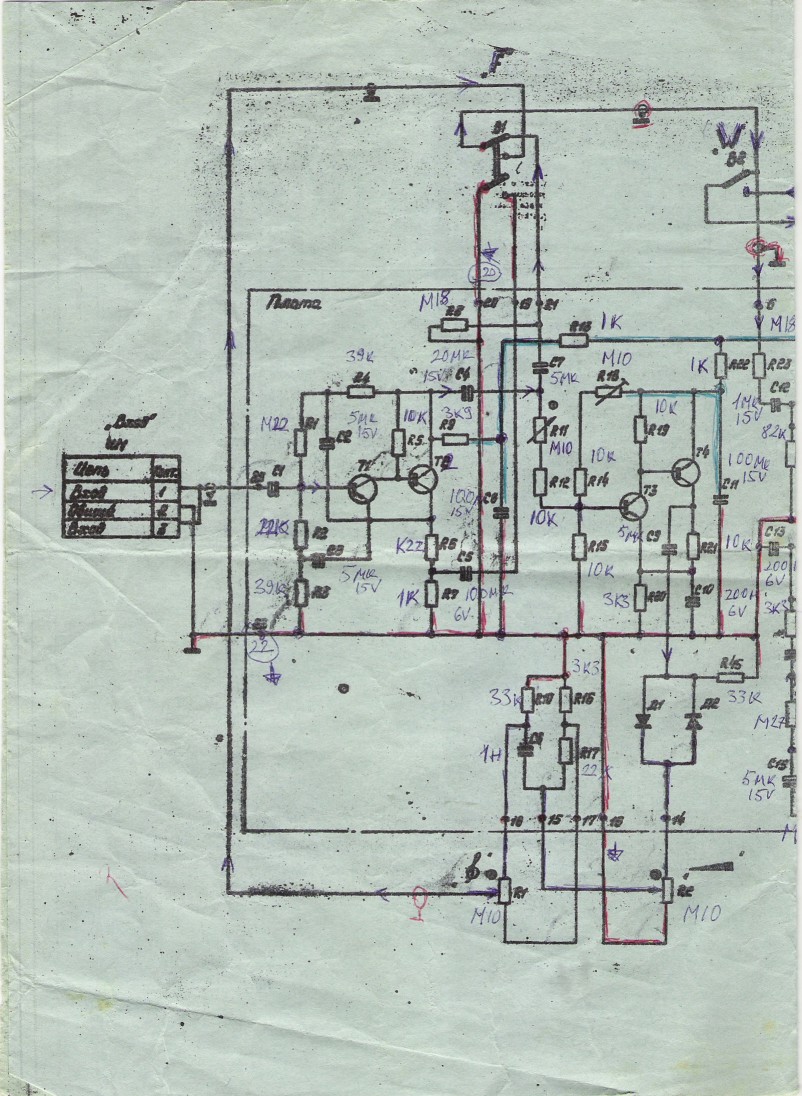 "F"
B1
"W"
B2
20
Плата
M18
R8
20
19
21
6
1K
R13
M18
39K
R4
20МК
15V
C4
C7
5МК
M10
R18
1K
R22
R23
C12
1МК
15V
M22
R1
5МК
15V
C2
10K
R5
3K9
R9
R11
M10
10K
R19
T4
82K
100МК
15V
„Вход"
Ш1
Цепь
Конт.
Вход
1
Общий
2
Вход
3
C1
T1
R12
10K
R14
T3
C11
10K
100МК
15V
C6
10K
22K
R2
C3
5МК
15V
K22
R6
C5
R15
10K
5МК
C9
R21
10K
C13
200
6V
39K
R3
1K
R7
100МК
6V
3K3
R20
C10
200
6V
3K3
22
3K3
R45
33K
33K
R10
R16
Д1
Д2
M27
1H
C8
R17
22K
C15
5МК
15V
16
15
17
18
14
R1
M10
R2
M10